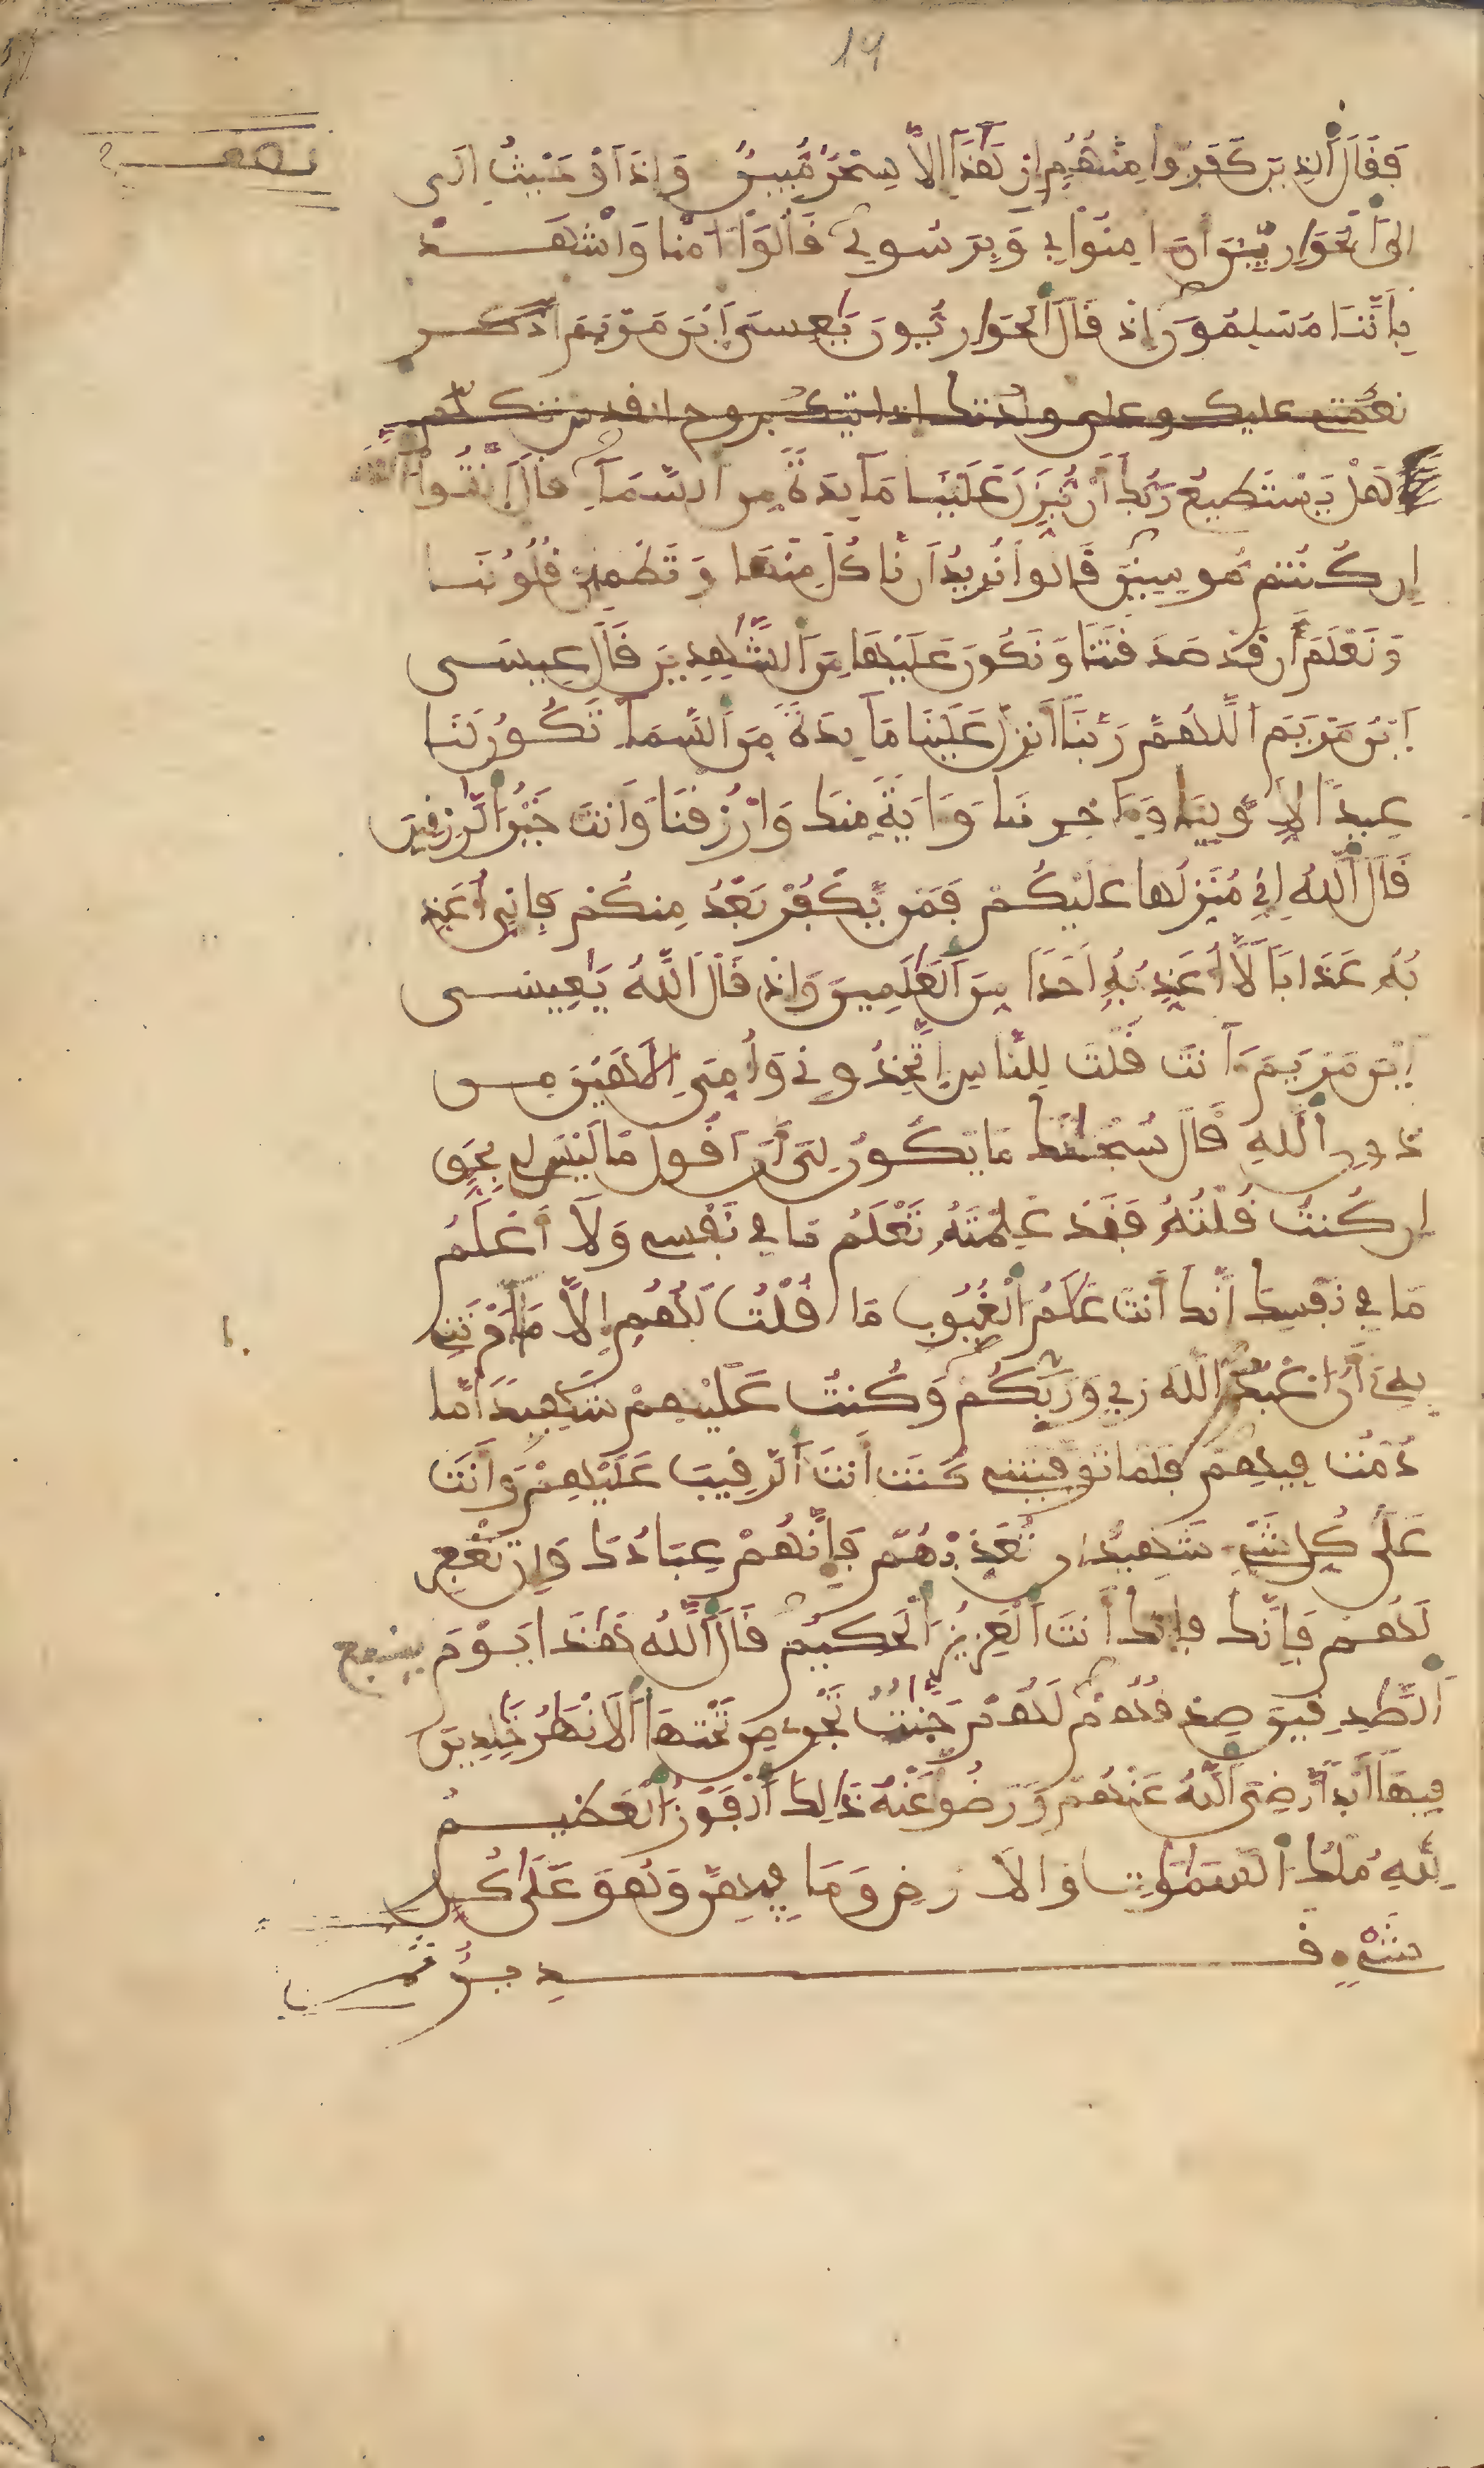 19
نصف
فَقَالَ ٱلذِينَ كَفَرُوا مِنْهُمُ إِنْ هَٰذَا إِلَّا سِحْرٌ مُّبِينٌ وَإِذَ اَوْحَيْتُ إِلَى
إِلَى ٱلْحَوَارِيِّينَ أَنَ امِنُوا بِي وَبِرَسُولِي قَالُوٓا ءَامَنَّا وَٱشْهَدْ
بِأَنَّنَا مُسْلِمُونَ إِذْ قَالَ ٱلْحَوَارِيُّونَ يَٰعِيسَى ٱبْنَ مَرْيَمَ اذكر
نعمتي عليك وعلى ولدتك إذ ايتك بروح القدس تكلم
هَلْ يَسْتَطِيعُ رَبُّكَ أَنْ يُّنَزِّلَ عَلَيْنَا مَآيِدَةً مِّنَ ٱلسَّمَآءِ قَالَ ٱتَّقُوا ٱللَّهَ
إِن كُنتُم مُّومِنِينَ قَالُوا نُرِيدُ أَن نَّاكُلَ مِنْهَا وَتَطْمَئِنَّ قُلُوبُنَا
وَنَعْلَمَ أَن قَدْ صَدَقْتَنَا وَنَكُونَ عَلَيْهَا مِنَ ٱلشَّٰهِدِينَ قَالَ عِيسَى
ٱبْنُ مَرْيَمَ ٱللَّهُمَّ رَبَّنَآ أَنزِلْ عَلَيْنَا مَآيِدَةً مِّنَ ٱلسَّمَآءِ تَكُونُ لَنَا
عِيدًا لِّأَوَّلِنَا وَءَاخِرِنَا وَءَايَةً مِّنكَ وَٱرْزُقْنَا وَأَنتَ خَيْرُ ٱلرَّٰزِقِينَ
قَالَ ٱللَّهُ إِنِّي مُنَزِّلُهَا عَلَيْكُمْ فَمَنْ يَّكْفُرْ بَعْدُ مِنكُمْ فَإِنِّيَ أُعَذِّ
بُهُ عَذَابًا لَّآ أُعَذِّبُهُ أَحَدًا مِّنَ ٱلْعَٰلَمِينَ وَإِذْ قَالَ ٱللَّهُ يَٰعِيسَى
ٱبْنَ مَرْيَمَ ءَآنتَ قُلْتَ لِلنَّاسِ ٱتَّخِذُونِي وَأُمِّيَ إِلَٰهَيْنِ مِن
دُونِ ٱللَّهِ قَالَ سُبْحَٰنَكَ مَا يَكُونُ لِيَ أَنَ اقُولَ مَا لَيْسَ لِي بِحَقٍّ
إِن كُنتُ قُلْتُهُ فَقَدْ عَلِمْتَهُ تَعْلَمُ مَا فِي نَفْسِي وَلَآ أَعْلَمُ
مَا فِي نَفْسِكَ إِنَّكَ أَنتَ عَلَّٰمُ ٱلْغُيُوبِ مَا قُلْتُ لَهُمُ إِلَّا مَآ أَمَرْتَنِي
بِهِ أَنُ اعْبُدُوا ٱللَّهَ رَبِّي وَرَبَّكُمْ وَكُنتُ عَلَيْهِمْ شَهِيدًا مَّا
دُمْتُ فِيهِمْ فَلَمَّا تَوَفَّيْتَنِي كُنتَ أَنتَ ٱلرَّقِيبَ عَلَيْهِمْ وَأَنتَ
عَلَىٰ كُلِّ شَيْءٍ شَهِيدٌ إِن تُعَذِّبْهُمْ فَإِنَّهُمْ عِبَادُكَ وَإِن تَغْفِرْ
لَهُمْ فَإِنَّكَ فإنك أَنتَ ٱلْعَزِيزُ ٱلْحَكِيمُ قَالَ ٱللَّهُ هَٰذَا يَوْمَ ينفع
ٱلصَّٰدِقِينَ صِدْقُهُمْ لَهُمْ جَنَّٰتٌ تَجْرِي مِن تَحْتِهَا ٱلَانْهَٰرُ خَٰلِدِينَ
فِيهَآ أَبَدًا رَّضِيَ ٱللَّهُ عَنْهُمْ وَرَضُوا عَنْهُ ذَٰلِكَ ٱلْفَوْزُ ٱلْعَظِيمُ
لِلَّهِ مُلْكُ ٱلسَّمَٰوَٰتِ وَالَارْضِ وَمَا فِيهِنَّ وَهُوَ عَلَىٰ كُلِّ
شَيْءٍ قَدِيرٌ